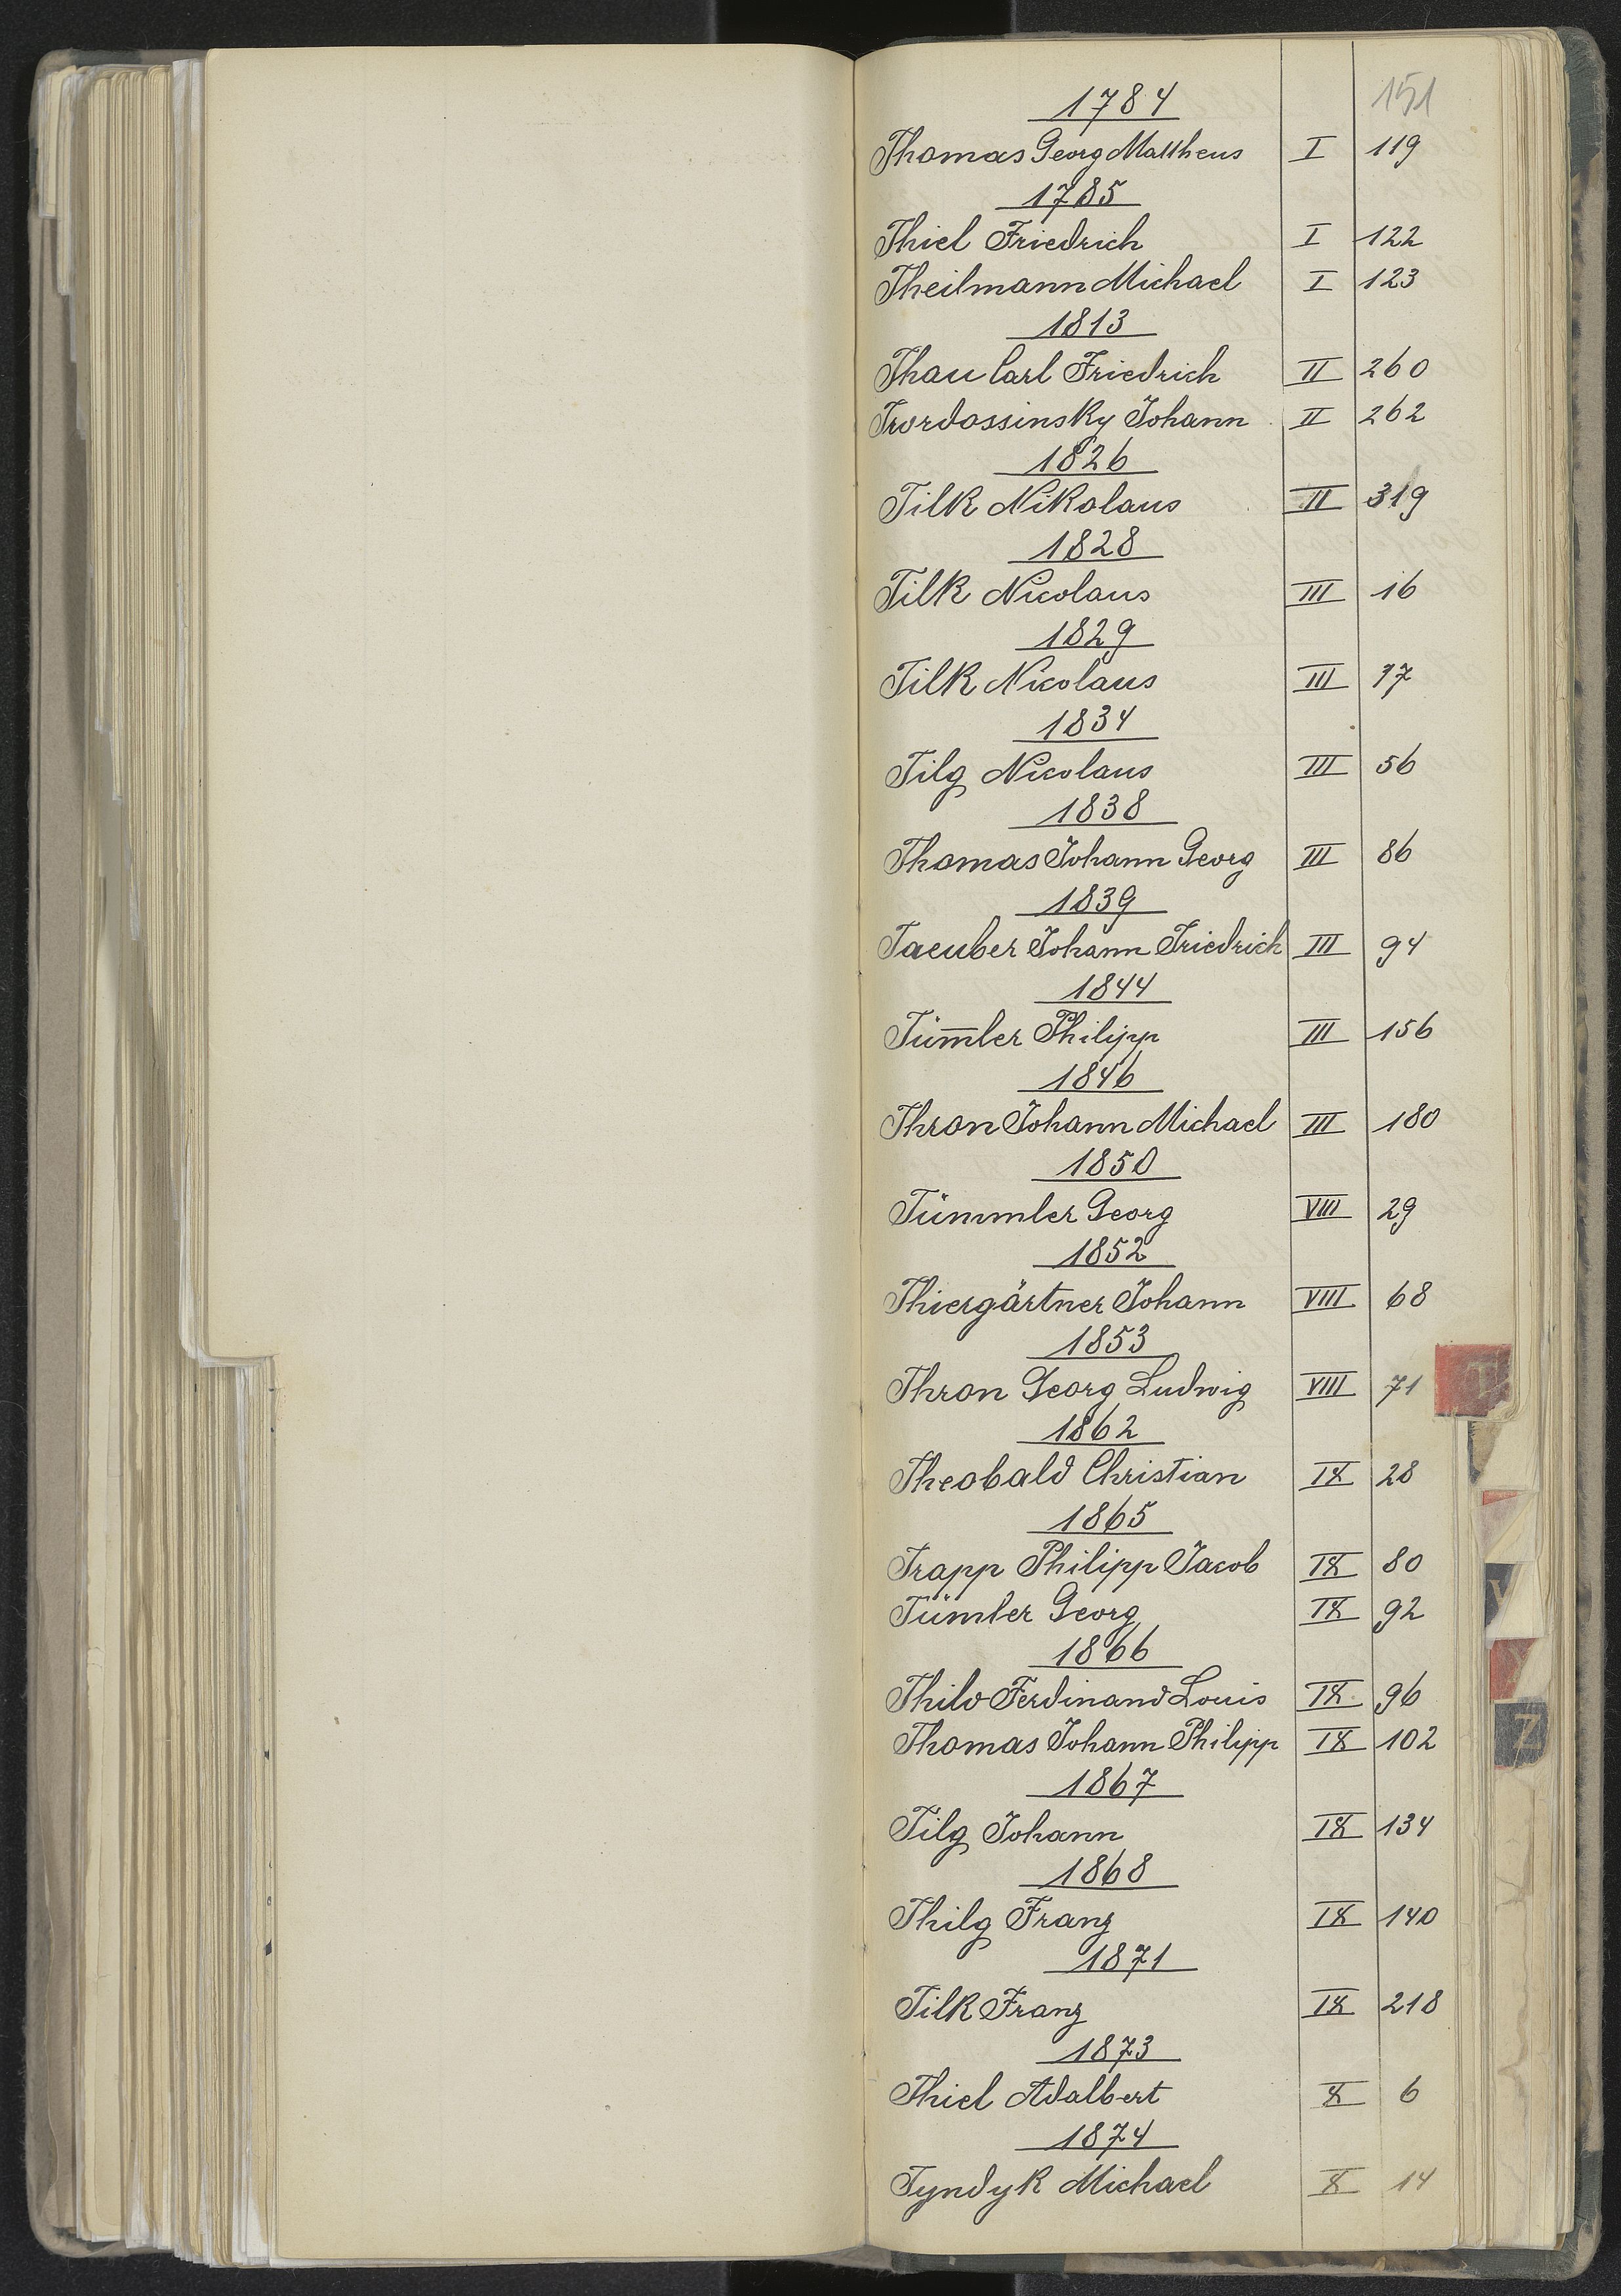 151
1784
Thomas Georg Mattheus I 119
1785
Thiel Friedrich I 122
Theilmann Michael I 123
1813
Thau Carl Friedrich II 260
Johann II 262
1826
Tilk Nikolaus II 319
1828
Tilk Nicolaus III 16
1829
Tilk Nicolaus III 17
1834
Tilg Nicolaus III 56
1838
Thomas Johann Georg III 86
1839
Taeuber Johann Friedrich III 94
1844
Tüm̅ler Philipp III 156
1846
Thron Johann Michael III 180
1850
Tümmler Georg VIII 29
1852
Thiergärtner Johann VIII 68
1853
Thron Georg Ludwig VIII 71
T
1862
Theobald Christian IX 28
1865
Trapp Philipp Jacob IX 80
Tümler Georg IX 92
V
1866
Thilo Ferdinand Louis IX 96
Thomas Johann Philipp IX 102
Z
1867
Tilg Johann IX 134
1868
Thilg Franz IX 140
1871
Tilk Franz IX 218
1873
Thiel Adalbert X 6
1874
Tyndyk Michael X 14